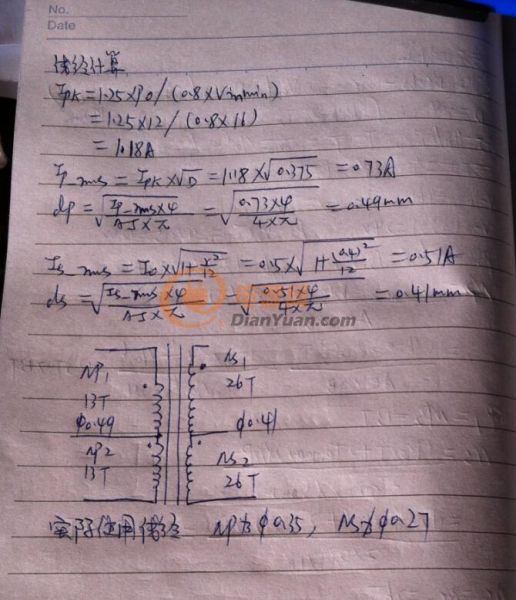 No.
Date
线径计算
IPK=1.25×P0/(0.8×Vinmin)
=1.25×12/(0.8×16)
=1.18A
Ip_rms=IPK×√D=1.18×√0.375=0.73A
dp=√(Ip_rms×4/AJ×π)=√(0.73×4/4×π)=0.49mm
Is_rms=Io×√(1+r²/12)=0.5×√(1+(0.4)²/12)=0.51A
ds=√(Is_rms×4/AJ×π)=√(0.51×4/4×π)=0.41mm
DianYuan.com
NP1 NS1
13T 26T
φ0.49 φ0.41
NP2 NS2
13T 26T
实际使用线径 NP为φ0.35, NS为φ0.27